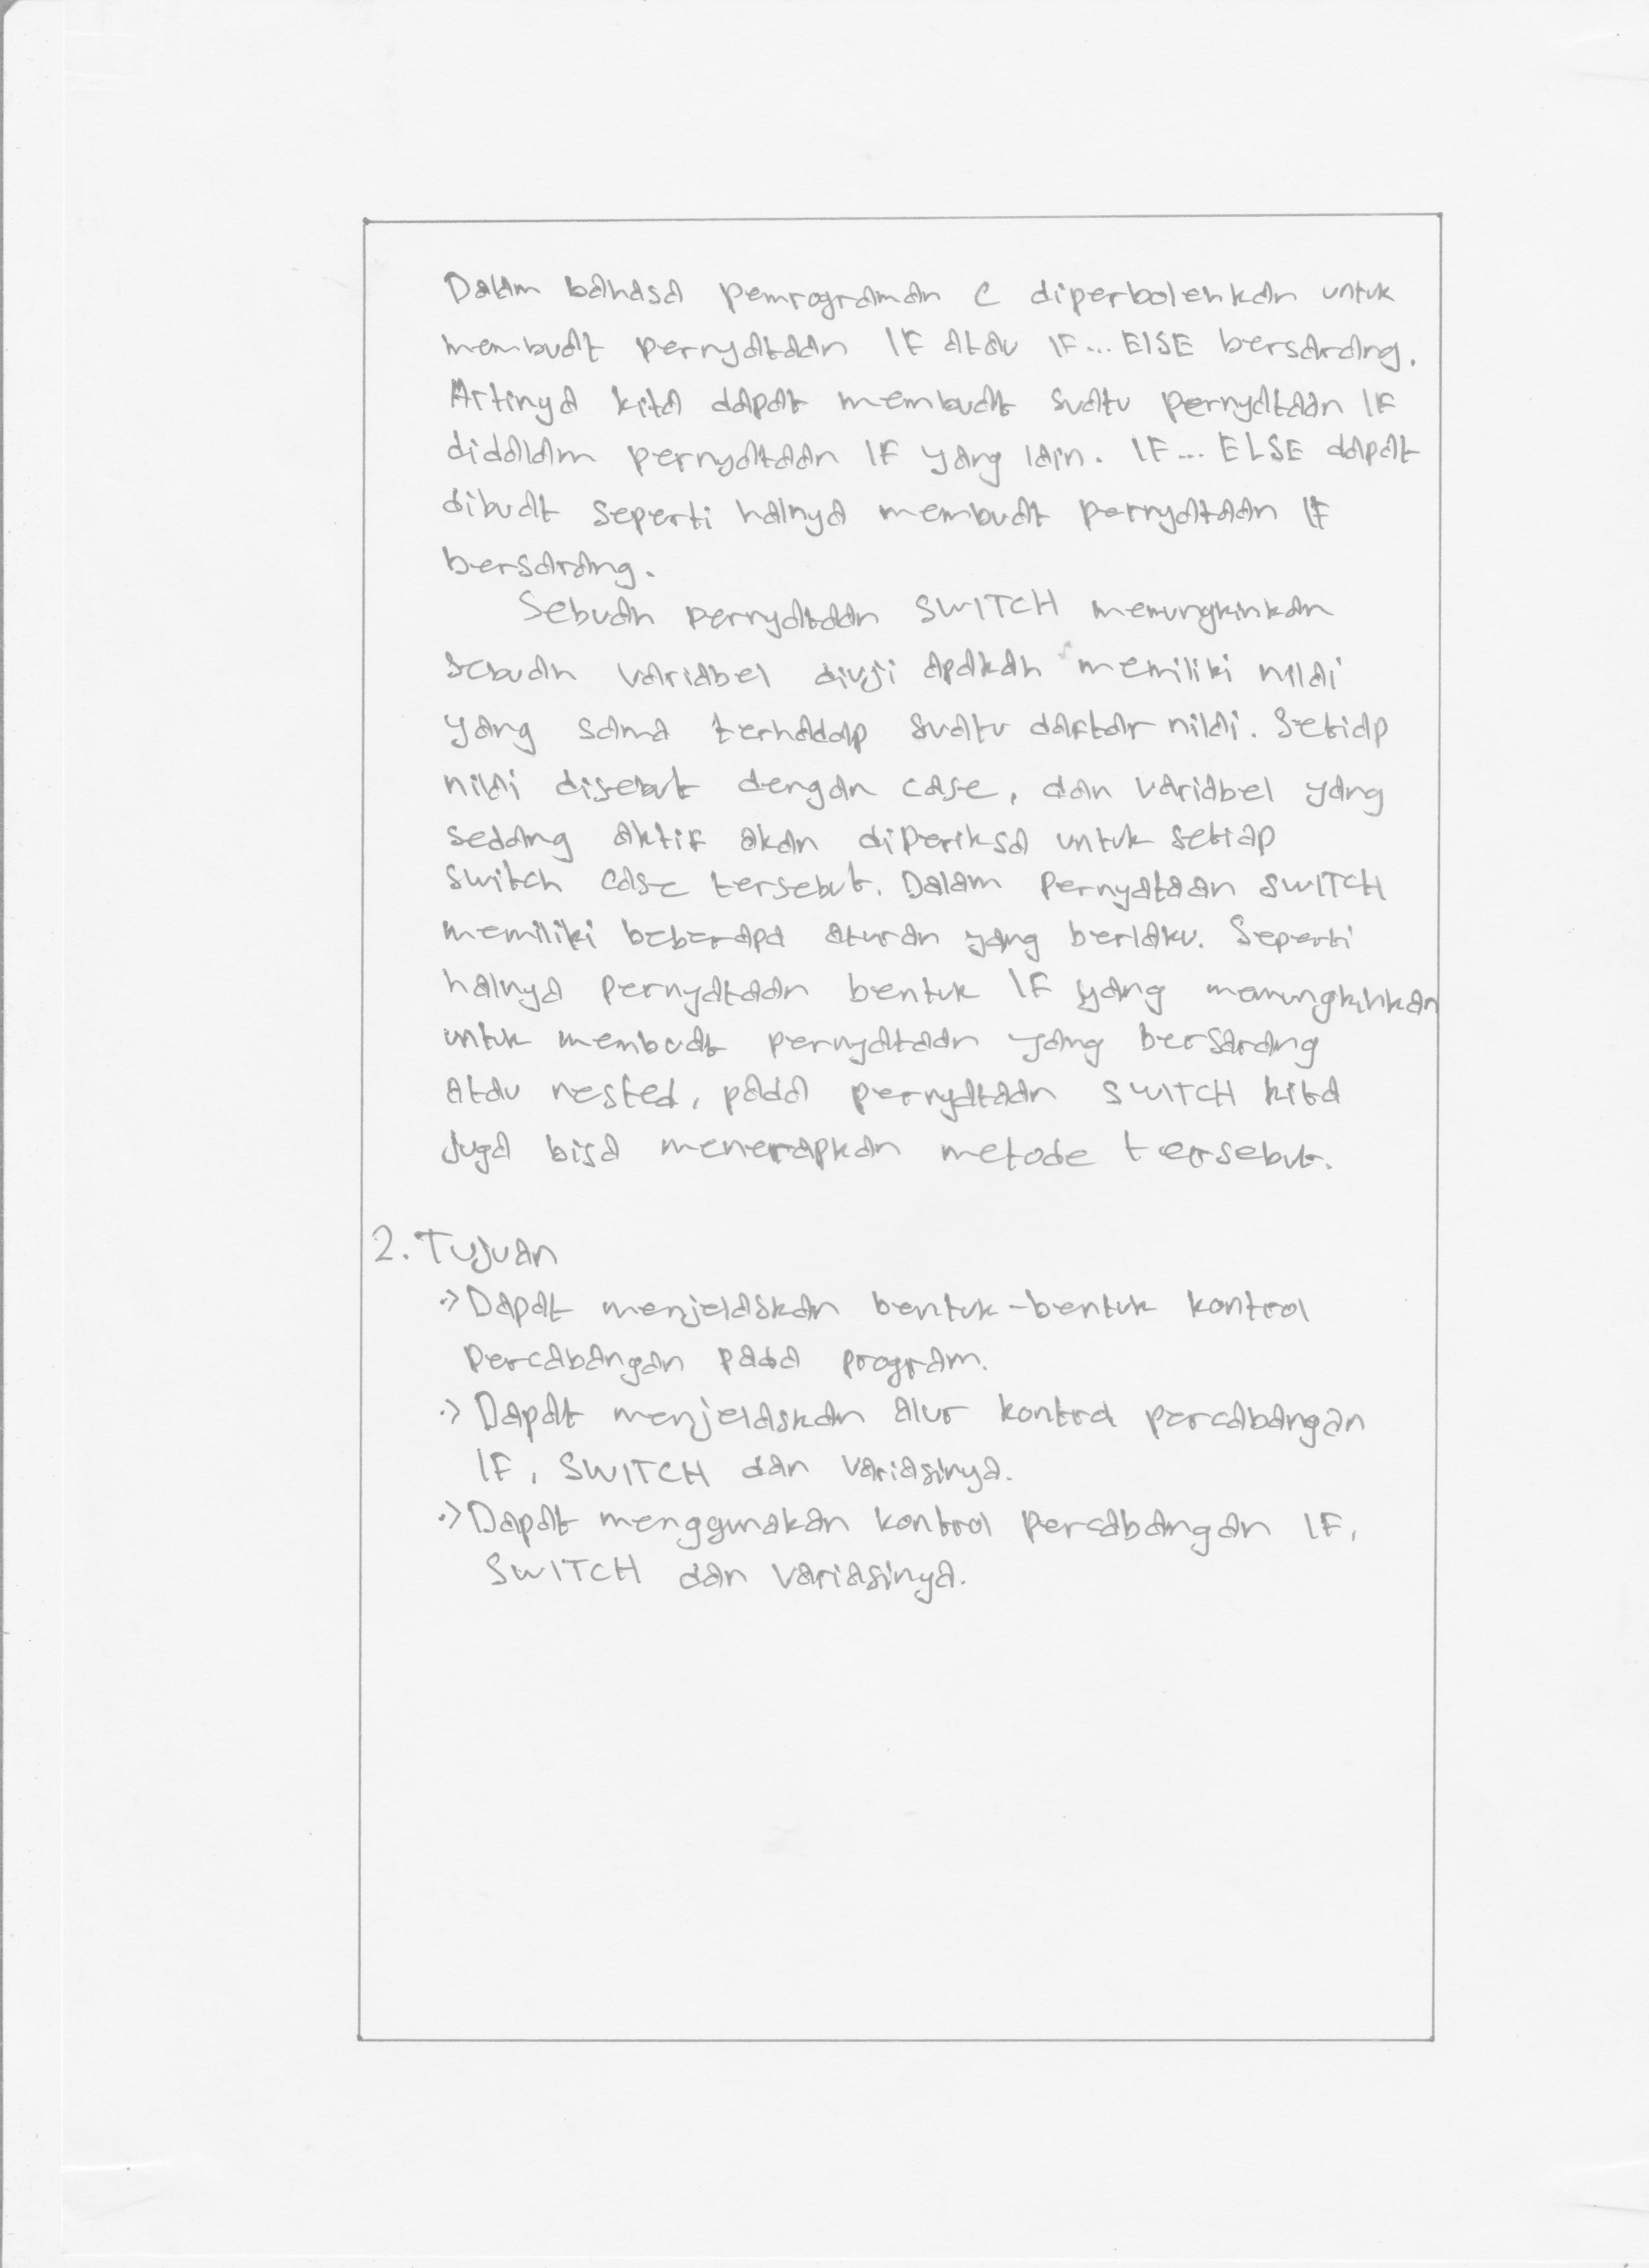 Dalam bahasa pemrograman C diperbolehkan untuk
membuat pernyataan IF atau IF... ElSE bersarang.
Artinya kita dapat membuat suatu pernyataan IF
didalam pernyataan IF yang lain. IF... ELSE dapat
dibuat seperti halnya membuat pernyataan IF
bersarang.
Sebuah pernyataan SWITCH memungkinkan
sebuah variabel diuji apakah memiliki nilai
yang sama terhadap suatu daftar nilai. Setiap
nilai disebut dengan case, dan variabel yang
sedang aktif akan diperiksa untuk setiap
switch case tersebut. Dalam pernyataan SWITCH
memiliki beberapa aturan yang berlaku. Seperti
halnya pernyataan bentuk IF yang memungkinkan
untuk membuat pernyataan yang bersarang
atau nested, pada pernyataan SWITCH kita
juga bisa menerapkan metode tersebut.
2. Tujuan
·> Dapat menjelaskan bentuk-bentuk kontrol
percabangan pada program.
·> Dapat menjelaskan alur kontrol percabangan
IF, SWITCH dan variasinya.
·> Dapat menggunakan kontrol percabangan IF,
SWITCH dan variasinya.